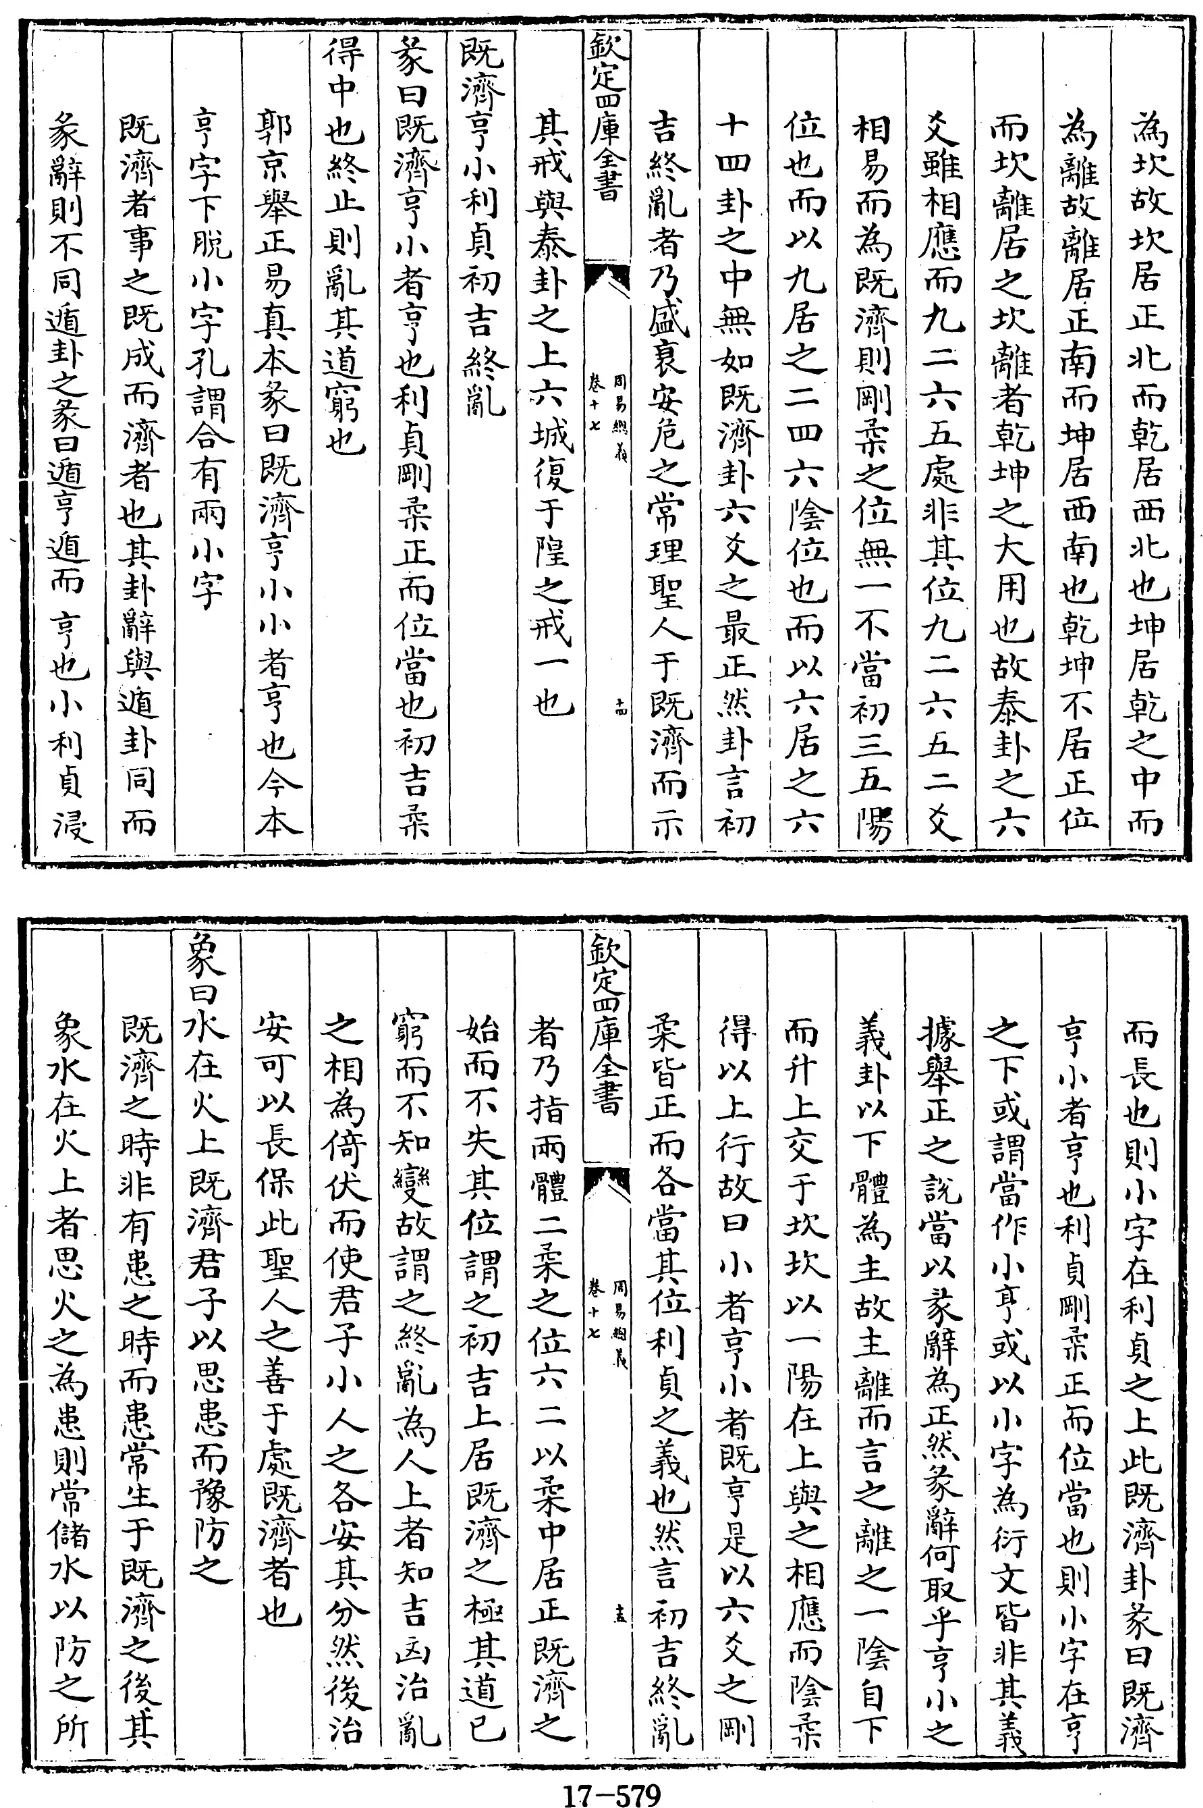 為坎故坎居正北而乾居西北也坤居乾之中而
為離故離居正南而坤居西南也乾坤不居正位
而坎離居之坎離者乾坤之大用也故泰卦之六
爻雖相應而九二六五處非其位九二六五二爻
相易而為既濟則剛柔之位無一不當初三五陽
位也而以九居之二四六陰位也而以六居之六
十四卦之中無如既濟卦六爻之最正然卦言初
吉終亂者乃盛衰安危之常理聖人于既濟而示
欽定四庫全書
周易總義
卷十七
十四
其戒與泰卦之上六城復于隍之戒一也
既濟亨小利貞初吉終亂
彖曰既濟亨小者亨也利貞剛柔正而位當也初吉柔
得中也終止則亂其道窮也
郭京舉正易真本彖曰既濟亨小小者亨也今本
亨字下脫小字孔謂合有兩小字
既濟者事之既成而濟者也其卦辭與遁卦同而
彖辭則不同遁卦之彖曰遁亨遁而亨也小利貞浸
而長也則小字在利貞之上此既濟卦彖曰既濟
亨小者亨也利貞剛柔正而位當也則小字在亨
之下或謂當作小亨或以小字為衍文皆非其義
據舉正之說當以彖辭為正然彖辭何取乎亨小之
義卦以下體為主故主離而言之離之一陰自下
而升上交于坎坎以一陽在上與之相應而陰柔
得以上行故曰小者亨小者既亨是以六爻之剛
柔皆正而各當其位利貞之義也然言初吉終亂
欽定四庫全書
周易總義
卷十七
十五
者乃指兩體二柔之位六二以柔中居正既濟之
始而不失其位謂之初吉上居既濟之極其道已
窮而不知變故謂之終亂為人上者知吉凶治亂
之相為倚伏而使君子小人之各安其分然後治
安可以長保此聖人之善于處既濟者也
象曰水在火上既濟君子以思患而豫防之
既濟之時非有患之時而患常生于既濟之後其
象水在火上者思火之為患則常儲水以防之所
17-579